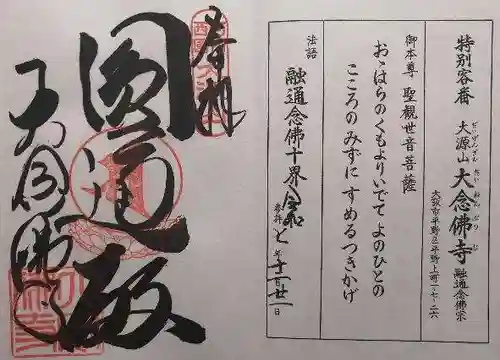 奉拝
圓通殿
大念佛寺
特別客番 大源山 大念佛寺 融通念佛宗
だいげんざん だいねんぶつじ
大阪市平野区平野上町一-七-二六
御本尊 聖観世音菩薩
おゝはらのくもよりいでて よのひとの
こころのみずに すめるつきかげ
法語 融通念佛十界
令和七年十一月廿一日
参拝